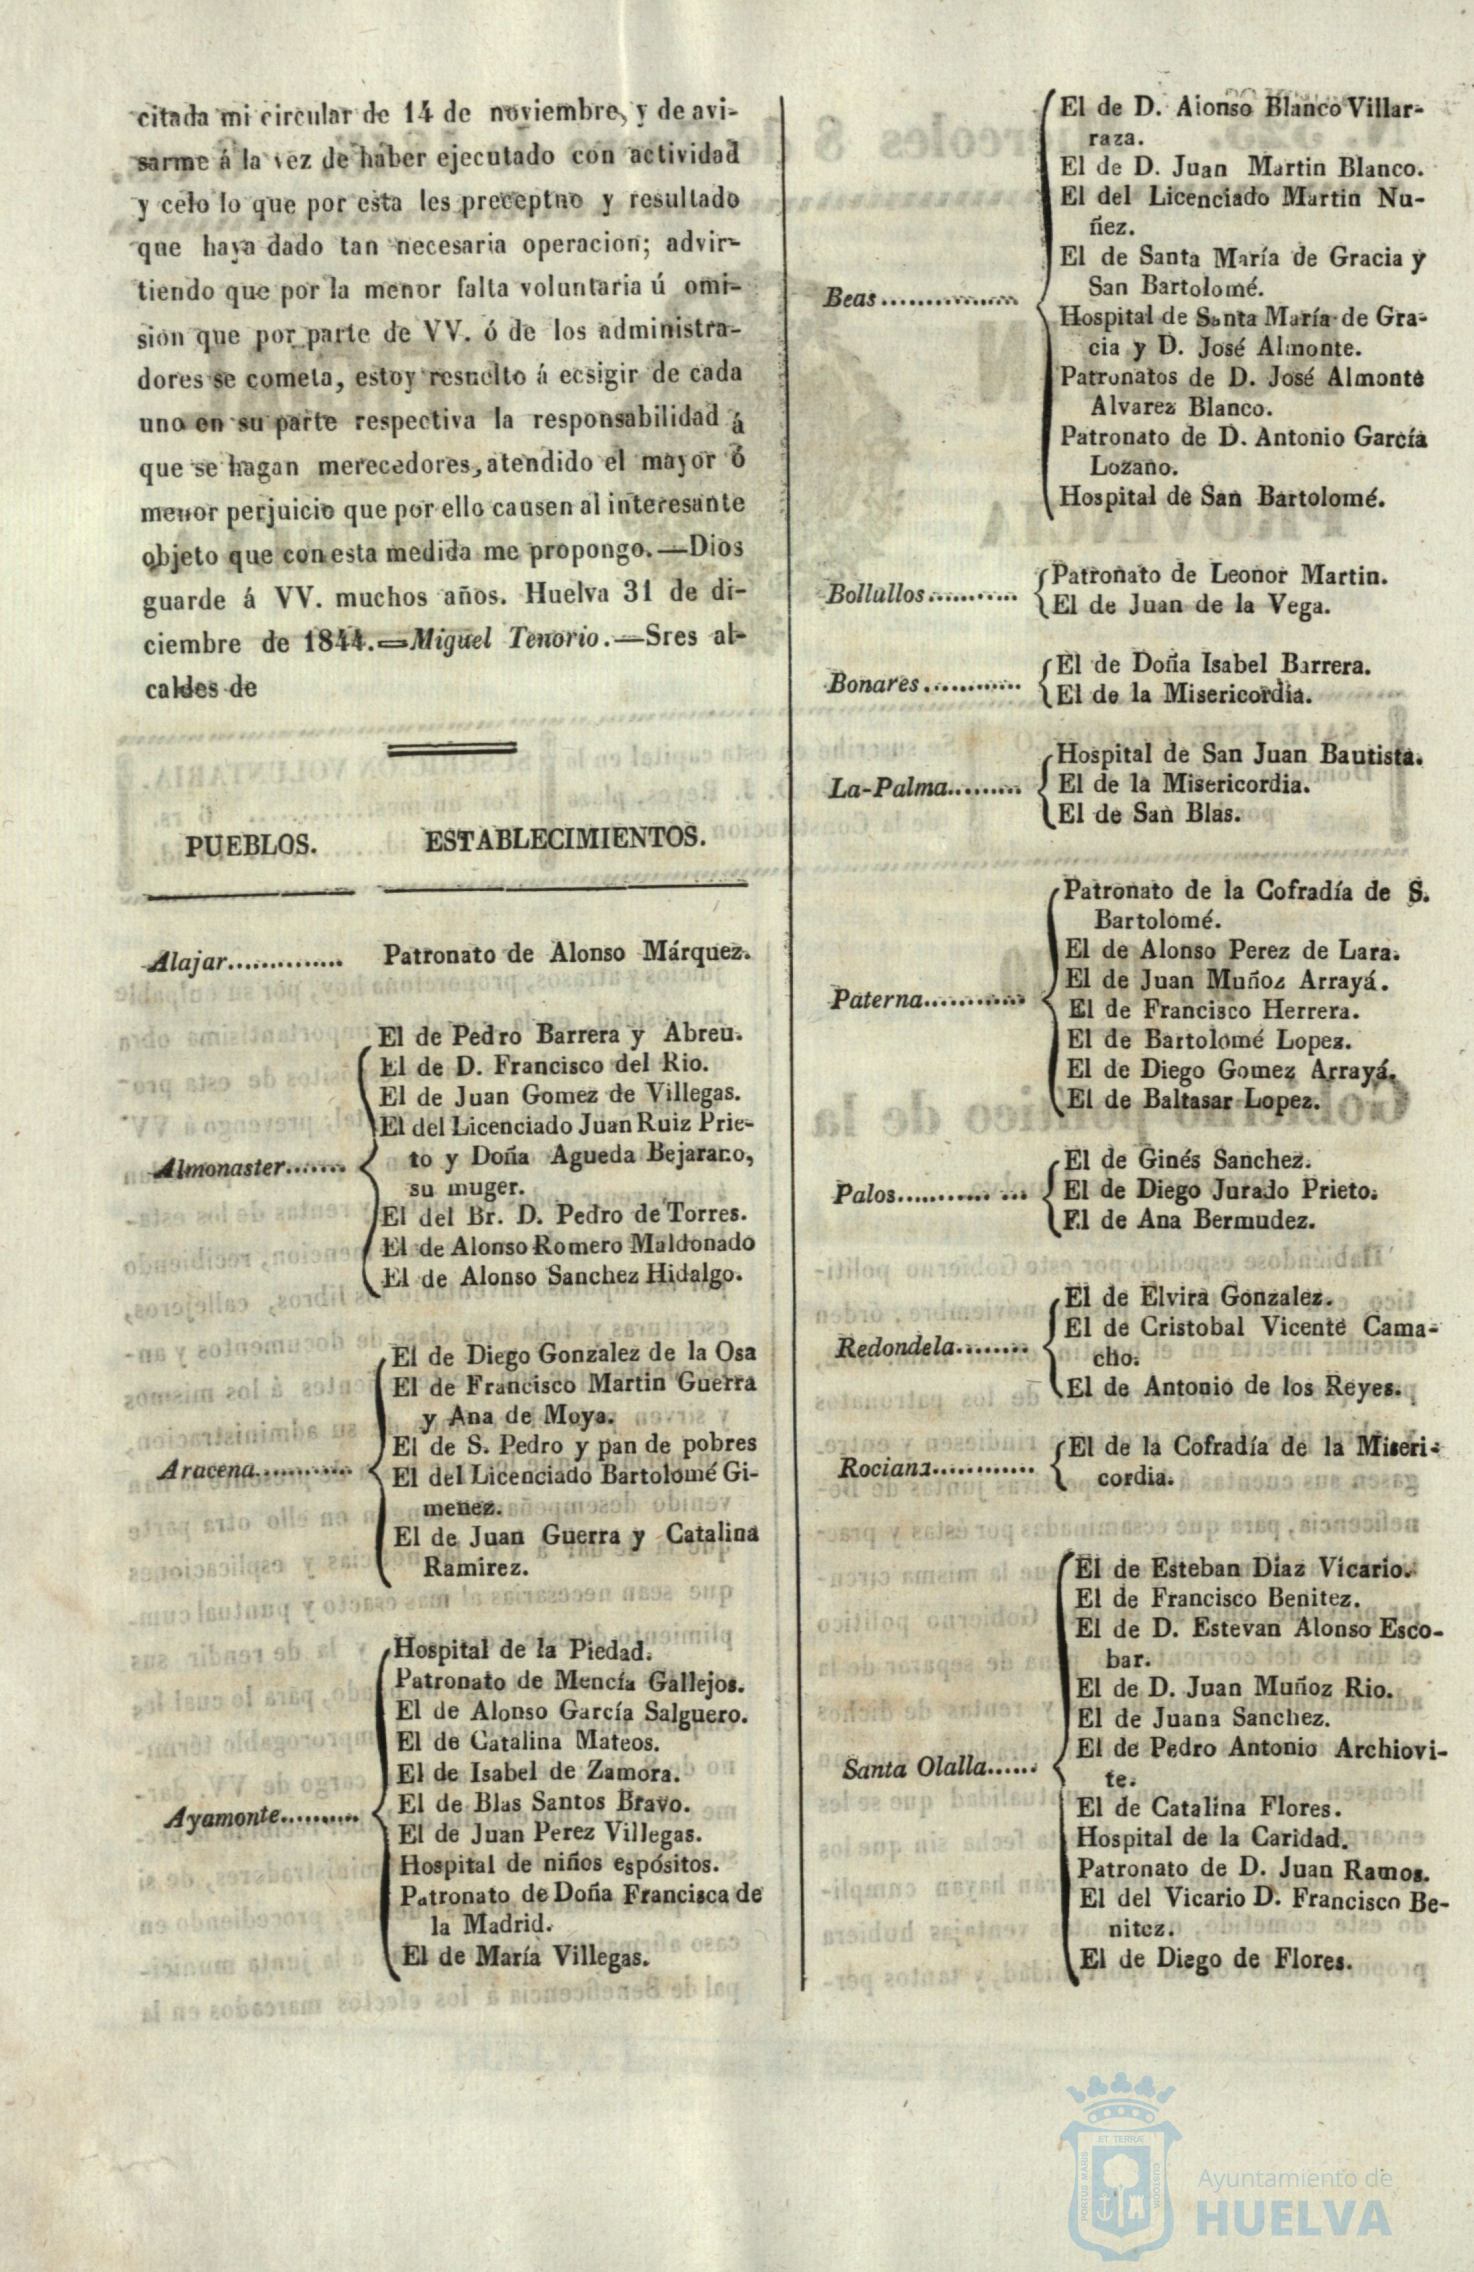 citada mi circular de 14 de noviembre, y de avi-
sarme á la vez de haber ejecutado con actividad
y celo lo que por esta les preceptuo y resultado
que haya dado tan necesaria operacion; advir-
tiendo que por la menor falta voluntaria ú omi-
sion que por parte de VV. ó de los administra-
dores se cometa, estoy resuelto á ecsigir de cada
uno en su parte respectiva la responsabilidad á
que se hagan merecedores, atendido el mayor ó
menor perjuicio que por ello causen al interesante
objeto que con esta medida me propongo.—Dios
guarde á VV. muchos años. Huelva 31 de di-
ciembre de 1844.=Miguel Tenorio.—Sres al-
caldes de
PUEBLOS. ESTABLECIMIENTOS.
Alajar............. Patronato de Alonso Márquez.
El de Pedro Barrera y Abreu.
El de D. Francisco del Rio.
El de Juan Gomez de Villegas.
El del Licenciado Juan Ruiz Prie-
Almonaster....... to y Doña Agueda Bejarano,
su muger.
El del Br. D. Pedro de Torres.
El de Alonso Romero Maldonado
El de Alonso Sanchez Hidalgo.
El de Diego Gonzalez de la Osa
El de Francisco Martin Guerra
y Ana de Moya.
El de S. Pedro y pan de pobres
Aracena........... El del Licenciado Bartolomé Gi-
menez.
El de Juan Guerra y Catalina
Ramirez.
Hospital de la Piedad.
Patronato de Mencía Gallejos.
El de Alonso García Salguero.
El de Catalina Mateos.
El de Isabel de Zamora.
Ayamonte......... El de Blas Santos Bravo.
El de Juan Perez Villegas.
Hospital de niños espósitos.
Patronato de Doña Francisca de
la Madrid.
El de María Villegas.
El de D. Alonso Blanco Villar-
raza.
El de D. Juan Martin Blanco.
El del Licenciado Martin Nu-
ñez.
El de Santa María de Gracia y
San Bartolomé.
Beas............... Hospital de Santa María de Gra-
cia y D. José Almonte.
Patronatos de D. José Almonte
Alvarez Blanco.
Patronato de D. Antonio García
Lozano.
Hospital de San Bartolomé.
Bollullos.......... Patronato de Leonor Martin.
El de Juan de la Vega.
Bonares........... El de Doña Isabel Barrera.
El de la Misericordia.
Hospital de San Juan Bautista.
La-Palma......... El de la Misericordia.
El de San Blas.
Patronato de la Cofradía de S.
Bartolomé.
El de Alonso Perez de Lara.
El de Juan Muñoz Arrayá.
Paterna........... El de Francisco Herrera.
El de Bartolomé Lopez.
El de Diego Gomez Arrayá.
El de Baltasar Lopez.
El de Ginés Sanchez.
Palos........... ... El de Diego Jurado Prieto.
El de Ana Bermudez.
El de Elvira Gonzalez.
El de Cristobal Vicente Cama-
Redondela........ cho.
El de Antonio de los Reyes.
Rociana............ El de la Cofradía de la Miseri-
cordia.
El de Esteban Diaz Vicario.
El de Francisco Benitez.
El de D. Estevan Alonso Esco-
bar.
El de D. Juan Muñoz Rio.
El de Juana Sanchez.
El de Pedro Antonio Archiovi-
Santa Olalla...... te.
El de Catalina Flores.
Hospital de la Caridad.
Patronato de D. Juan Ramos.
El del Vicario D. Francisco Be-
nitez.
El de Diego de Flores.
ET TERRÆ
PORTUS MARIS
CUSTODIA
Ayuntamiento de
HUELVA